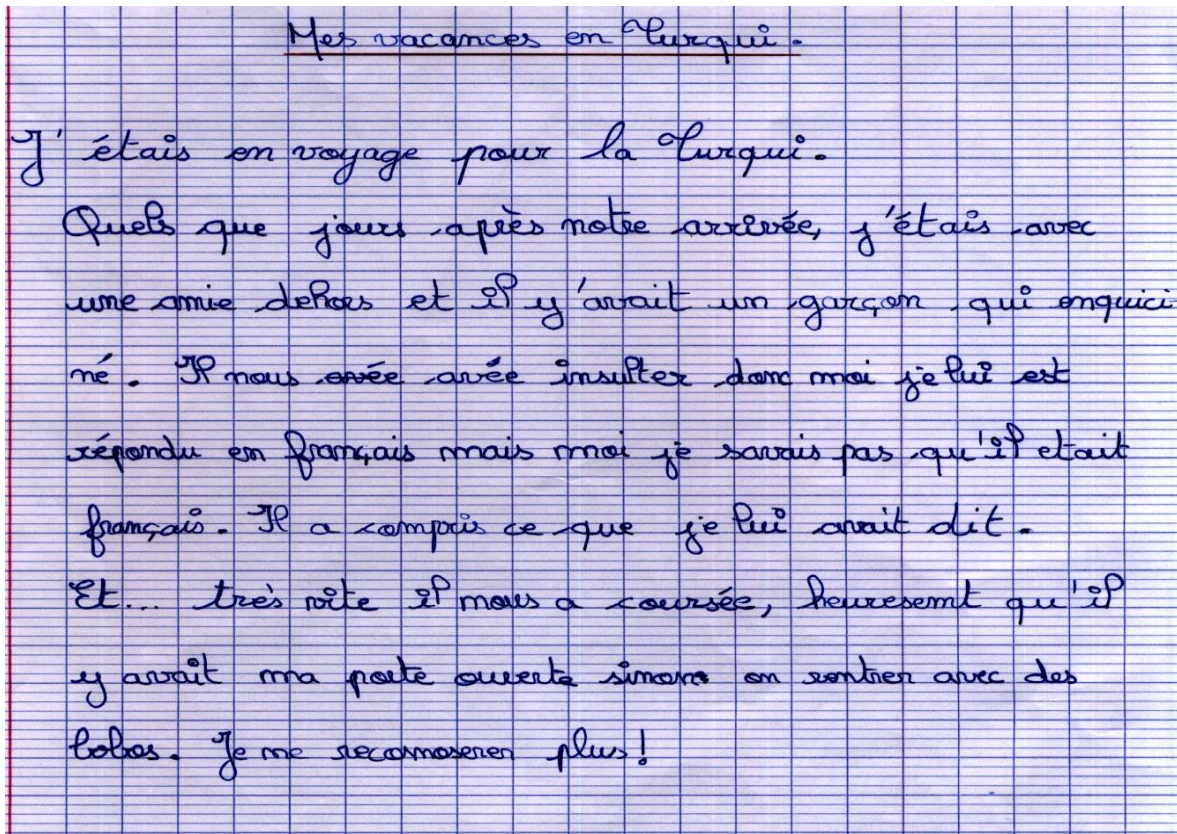 Mes vacances en Turqui.
J'étais en voyage pour la Turqui.
Quels que jours après notre arrivée, j'étais avec
une amie dehors et il y'avait un garçon qui enquici
né. Il nous avée insulter donc moi je lui est
répondu en français mais moi je savais pas qu'il etait
français. Il a compris ce que je lui avait dit.
Et... très vite il nous a coursée, heuresemt qu'il
y avait ma porte ouverte sinon on rentrer avec des
bobos. Je me recomoserer plus!